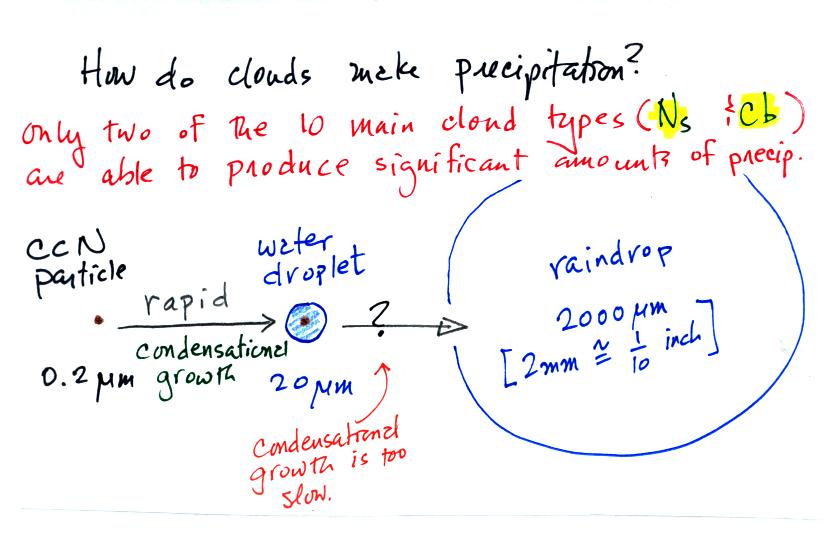 How do clouds make precipitation?
only two of the 10 main cloud types (Ns & Cb)
are able to produce significant amounts of precip.
CCN
particle
0.2 μm
rapid
condensational
growth
water
droplet
20 μm
?
condensational
growth is too
slow.
raindrop
2000 μm
[2mm ≅ 1/10 inch]